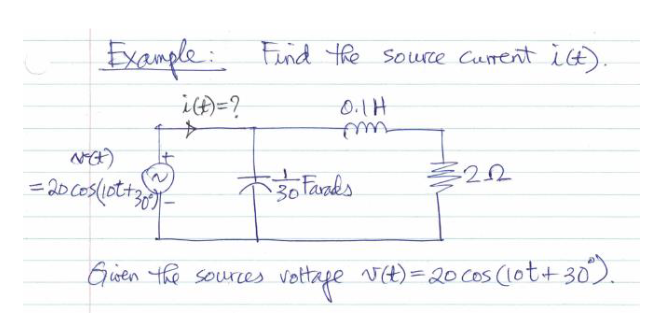 Example: Find the source current i(t).
i(t)=?
0.1H
v(t)
= 20 cos(10t+30°)
+
-
1/30 Farads
2Ω
Given the sources voltage v(t) = 20 cos (10t + 30°).